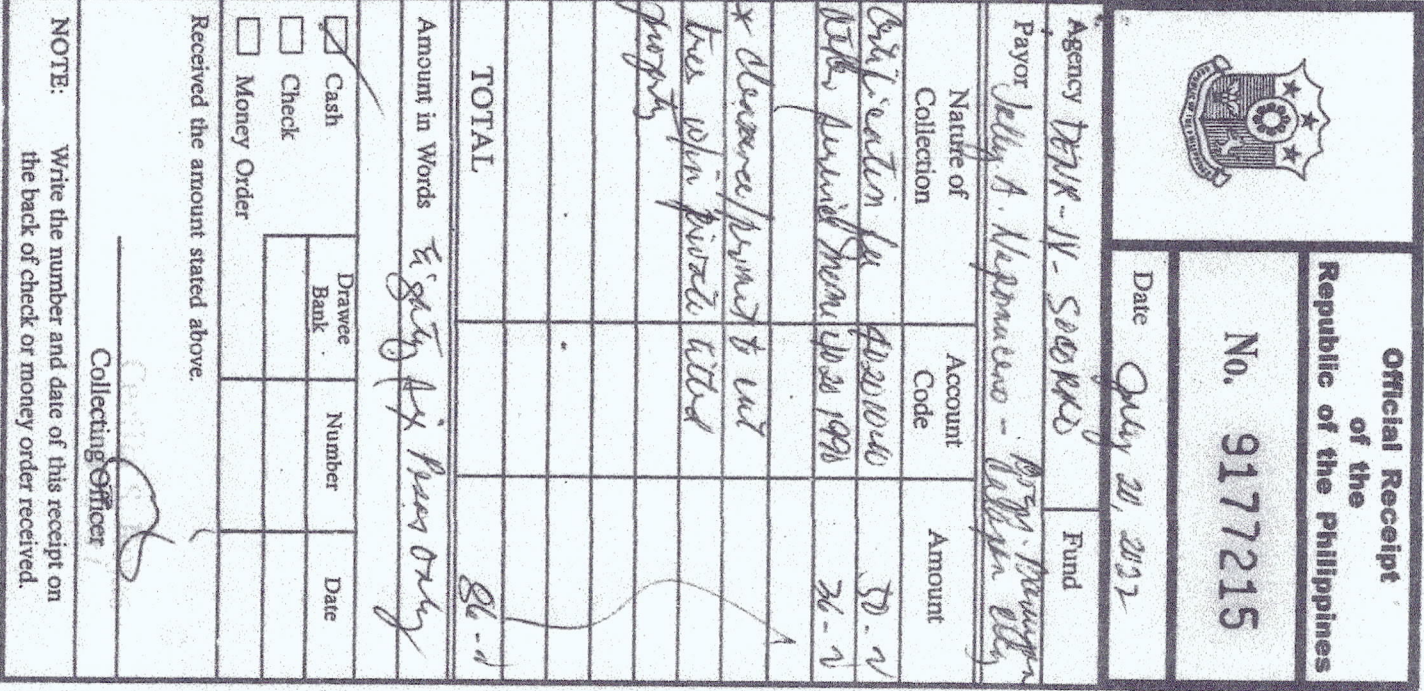 Official Receipt
of the
Republic of the Philippines
No. 9177215
Date July 20, 2022
Agency DENR-IV- SOCORRO
Fund
Payor Jelly A. Nepomuceno -
Nature of Collection
Account Code
Amount
Certification fee 40201040 50.-
Other service income 40201990 36.-
* Clearance/permit to cut
trees w/in private titled
property
TOTAL 86.-
Amount in Words Eighty Six Pesos Only
Cash
Check
Money Order
Drawee Bank
Number
Date
Received the amount stated above.
Collecting Officer
NOTE: Write the number and date of this receipt on
the back of check or money order received.